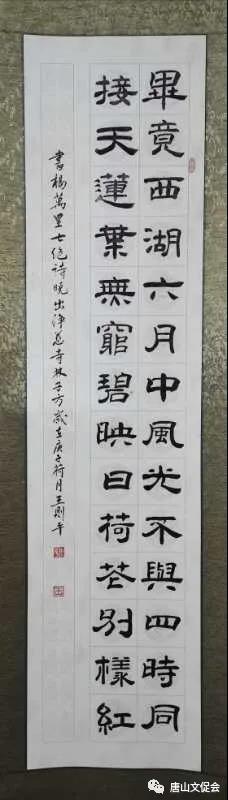 畢竟西湖六月中風光不與四時同
接天蓮葉無窮碧映日荷花别樣紅
書楊萬里七绝诗晓出淨慈寺林子方歲在庚子荷月王則平
唐山文促会